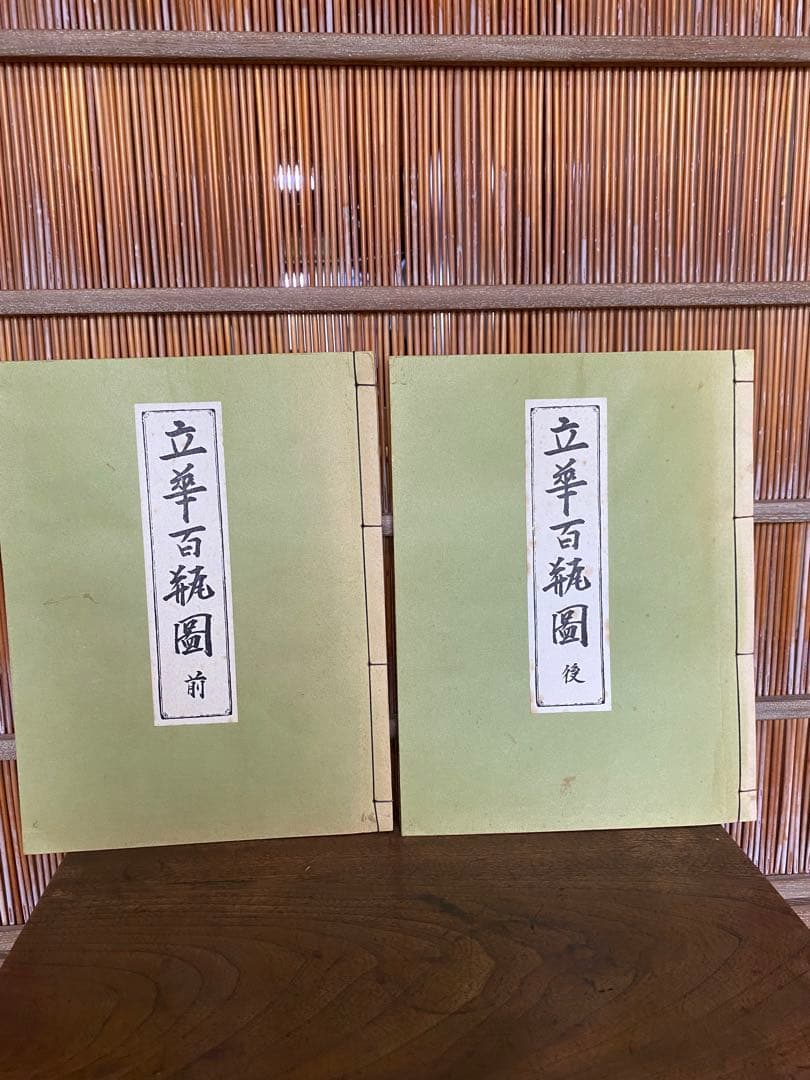 立華百瓶圖 前
立華百瓶圖 後